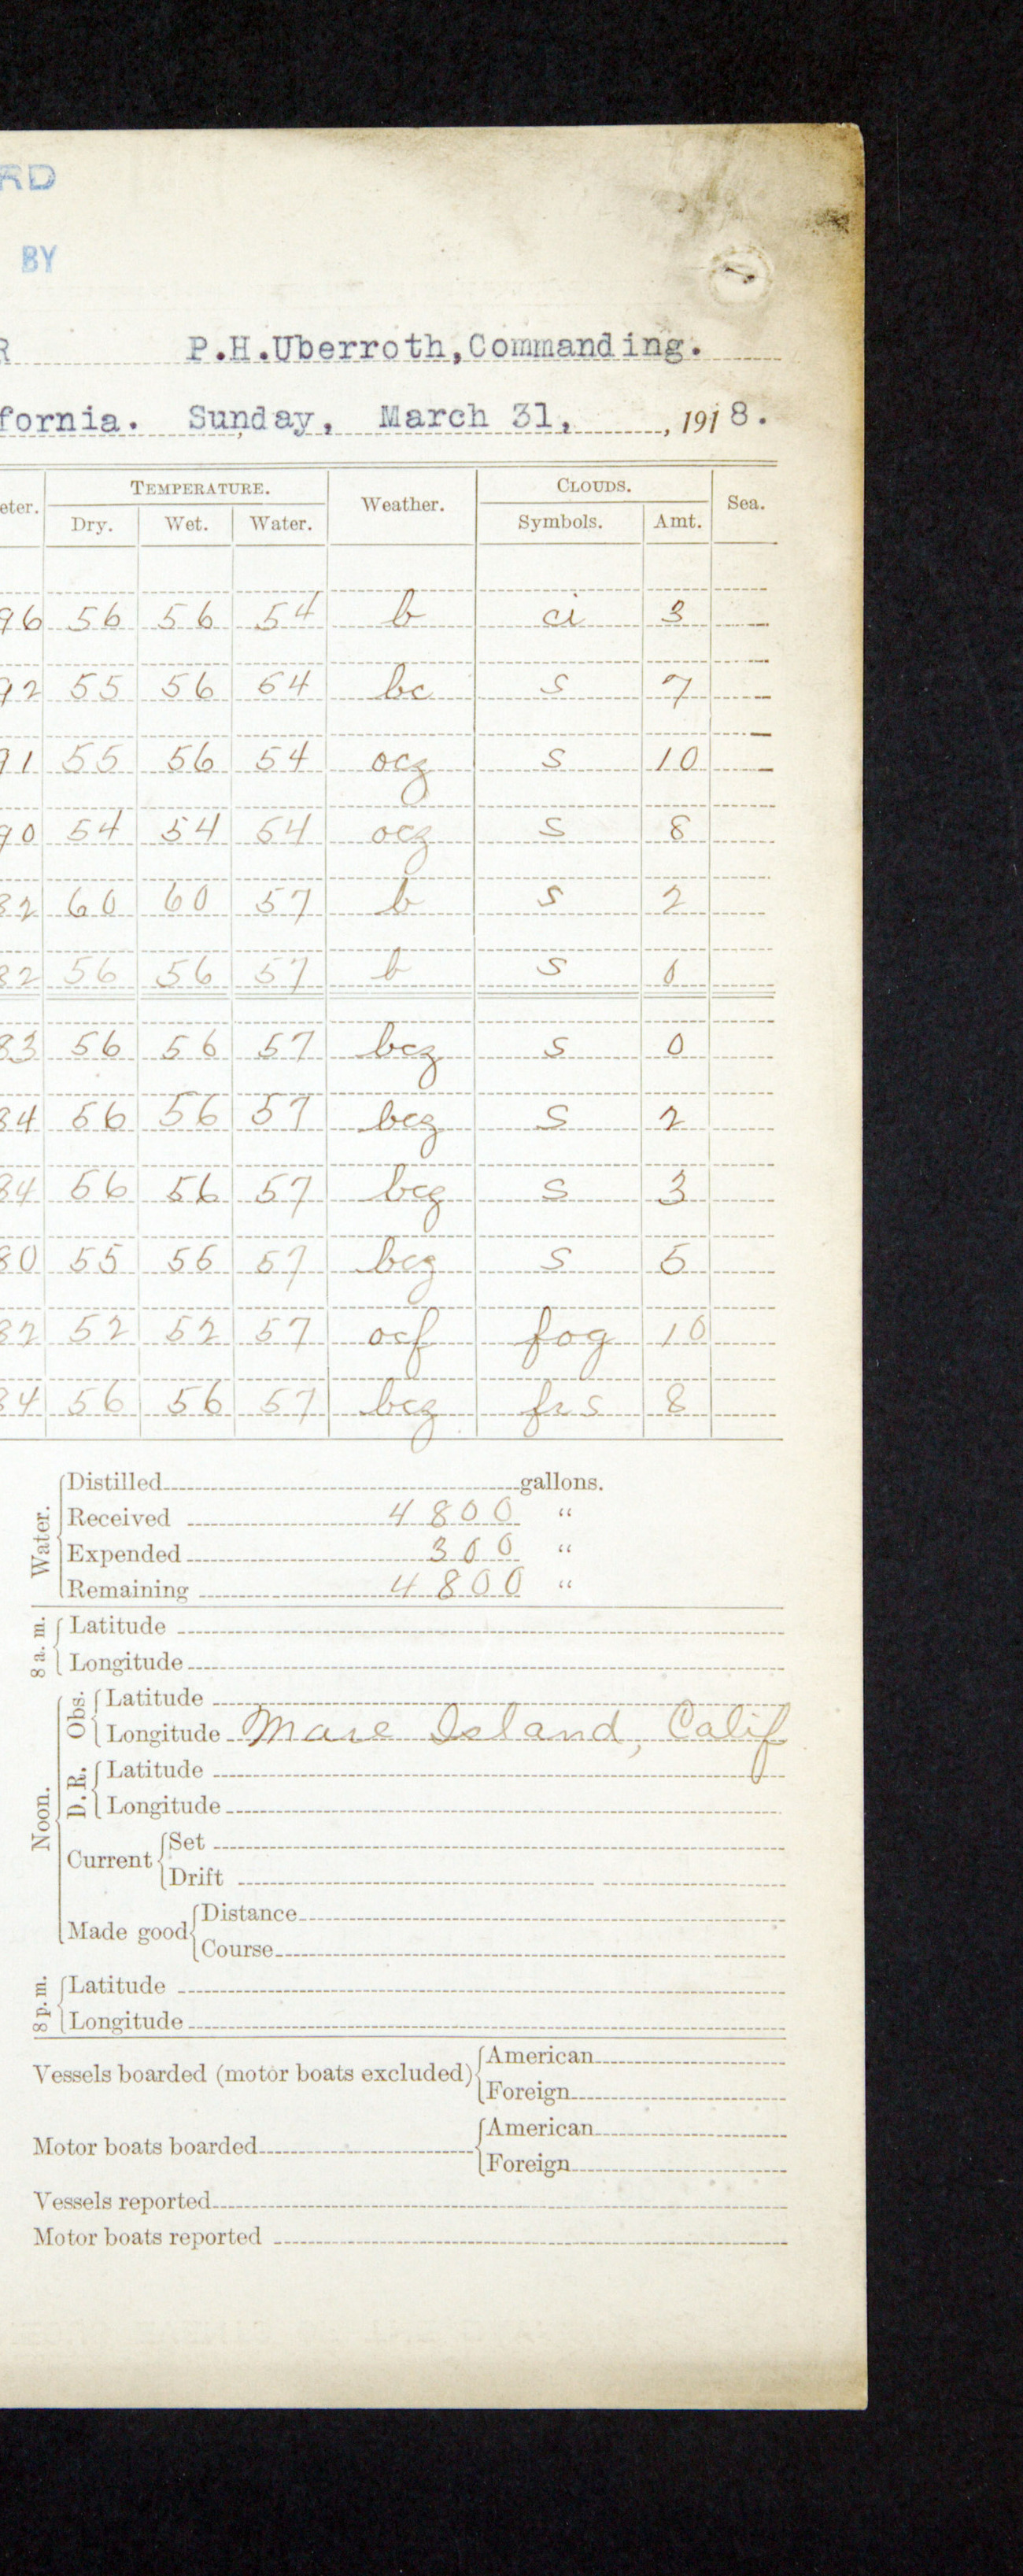 RD
BY
R P.H.Uberroth,Commanding.
fornia. Sunday, March 31, , 1918.
eter. TEMPERATURE. Weather. CLOUDS. Sea.
Dry. Wet. Water. Symbols. Amt.
96 56 56 54 b ci 3
92 55 56 54 bc s 7
91 55 56 54 ocz s 10
90 54 54 54 ocz s 8
82 60 60 57 b s 2
82 56 56 57 b s 0
83 56 56 57 bcz s 0
84 56 56 57 bcz s 2
84 56 56 57 bcz s 3
80 55 56 57 bcz s 5
82 52 52 57 ocf fog 10
84 56 56 57 bcz frs 8
Water.
Distilled gallons.
Received 4800 "
Expended 300 "
Remaining 4800 "
8 a. m.
Latitude
Longitude
Noon.
Obs.
Latitude
Longitude Mare Island, Calif
D. R.
Latitude
Longitude
Current
Set
Drift
Made good
Distance
Course
8 p. m.
Latitude
Longitude
Vessels boarded (motor boats excluded)
American
Foreign
Motor boats boarded
American
Foreign
Vessels reported
Motor boats reported